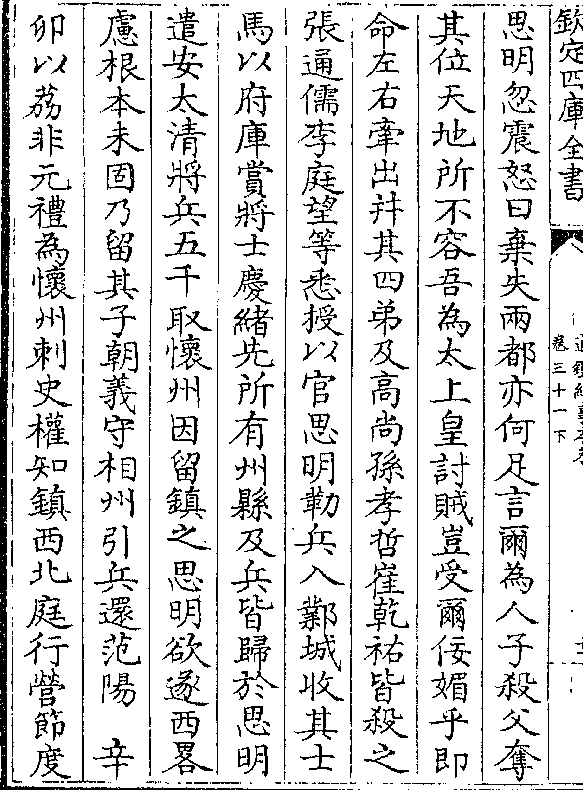 欽定四庫全書
卷三十一下
思明忽震怒曰棄失兩都亦何足言爾為人子殺父奪
其位天地所不容吾為太上皇討賊豈受爾佞媚乎即
命左右牽出并其四弟及高尚孫孝哲崔乾祐皆殺之
張通儒李庭望等悉授以官思明勒兵入鄴城收其士
馬以府庫賞將士慶緒先所有州縣及兵皆歸於思明
遣安太清將兵五千取懷州因留鎮之思明欲遂西畧
慮根本未固乃留其子朝義守相州引兵還范陽　辛
卯以荔非元禮為懷州刺史權知鎮西北庭行營節度